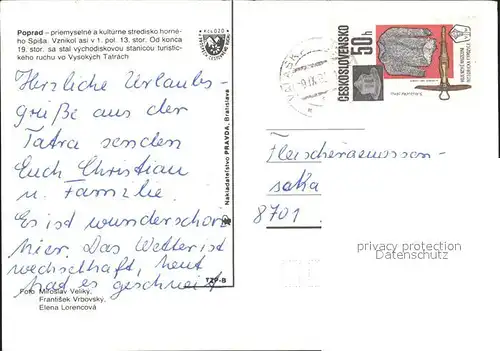 Poprad – priemyselné a kultúrne stredisko horné-
ho Spiša. Vznikol asi v 1. pol. 13. stor. Od konca
19. stor. sa stal východiskovou stanicou turistic-
kého ruchu vo Vysokých Tatrách
Herzliche Urlaubs-
grüße aus der
Tatra senden
Euch Christian
u. Familie.
Es ist wunderschön
hier. Das Wetter ist
wechselhaft, heut
hat es geschneit
Foto Miroslav Veliký,
František Vrbovský,
Elena Lorencová
Nakladateľstvo PRAVDA, Bratislava
ČESKOSLOVENSKO
50h
8701
privacy protection
Datenschutz